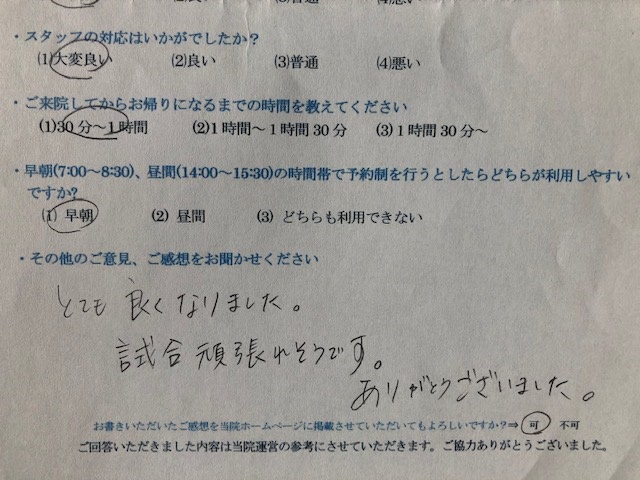 ・スタッフの対応はいかがでしたか?
(1)大変良い (2)良い (3)普通 (4)悪い
・ご来院してからお帰りになるまでの時間を教えてください
(1)30分〜1時間 (2)1時間〜1時間30分 (3)1時間30分〜
・早朝(7:00〜8:30)、昼間(14:00〜15:30)の時間帯で予約制を行うとしたらどちらが利用しやすい
ですか?
(1) 早朝 (2) 昼間 (3) どちらも利用できない
・その他のご意見、ご感想をお聞かせください
とても良くなりました。
試合頑張れそうです。
ありがとうございました。
お書きいただいたご感想を当院ホームページに掲載させていただいてもよろしいですか?⇒ 可 不可
ご回答いただきました内容は当院運営の参考にさせていただきます。ご協力ありがとうございました。